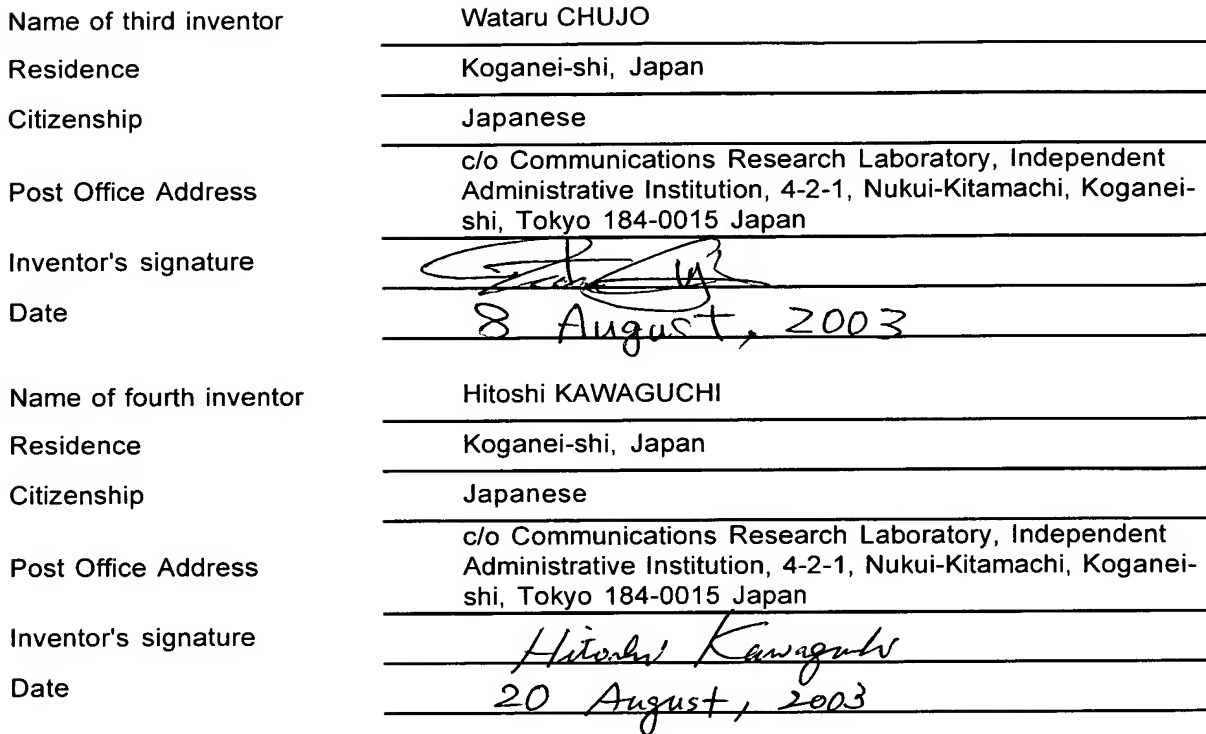 Name of third inventor Wataru CHUJO
Residence Koganei-shi, Japan
Citizenship Japanese
c/o Communications Research Laboratory, Independent
Post Office Address Administrative Institution, 4-2-1, Nukui-Kitamachi, Koganei-
shi, Tokyo 184-0015 Japan
Inventor's signature
Date 8 August, 2003
Name of fourth inventor Hitoshi KAWAGUCHI
Residence Koganei-shi, Japan
Citizenship Japanese
c/o Communications Research Laboratory, Independent
Post Office Address Administrative Institution, 4-2-1, Nukui-Kitamachi, Koganei-
shi, Tokyo 184-0015 Japan
Inventor's signature Hitoshi Kawaguchi
Date 20 August, 2003